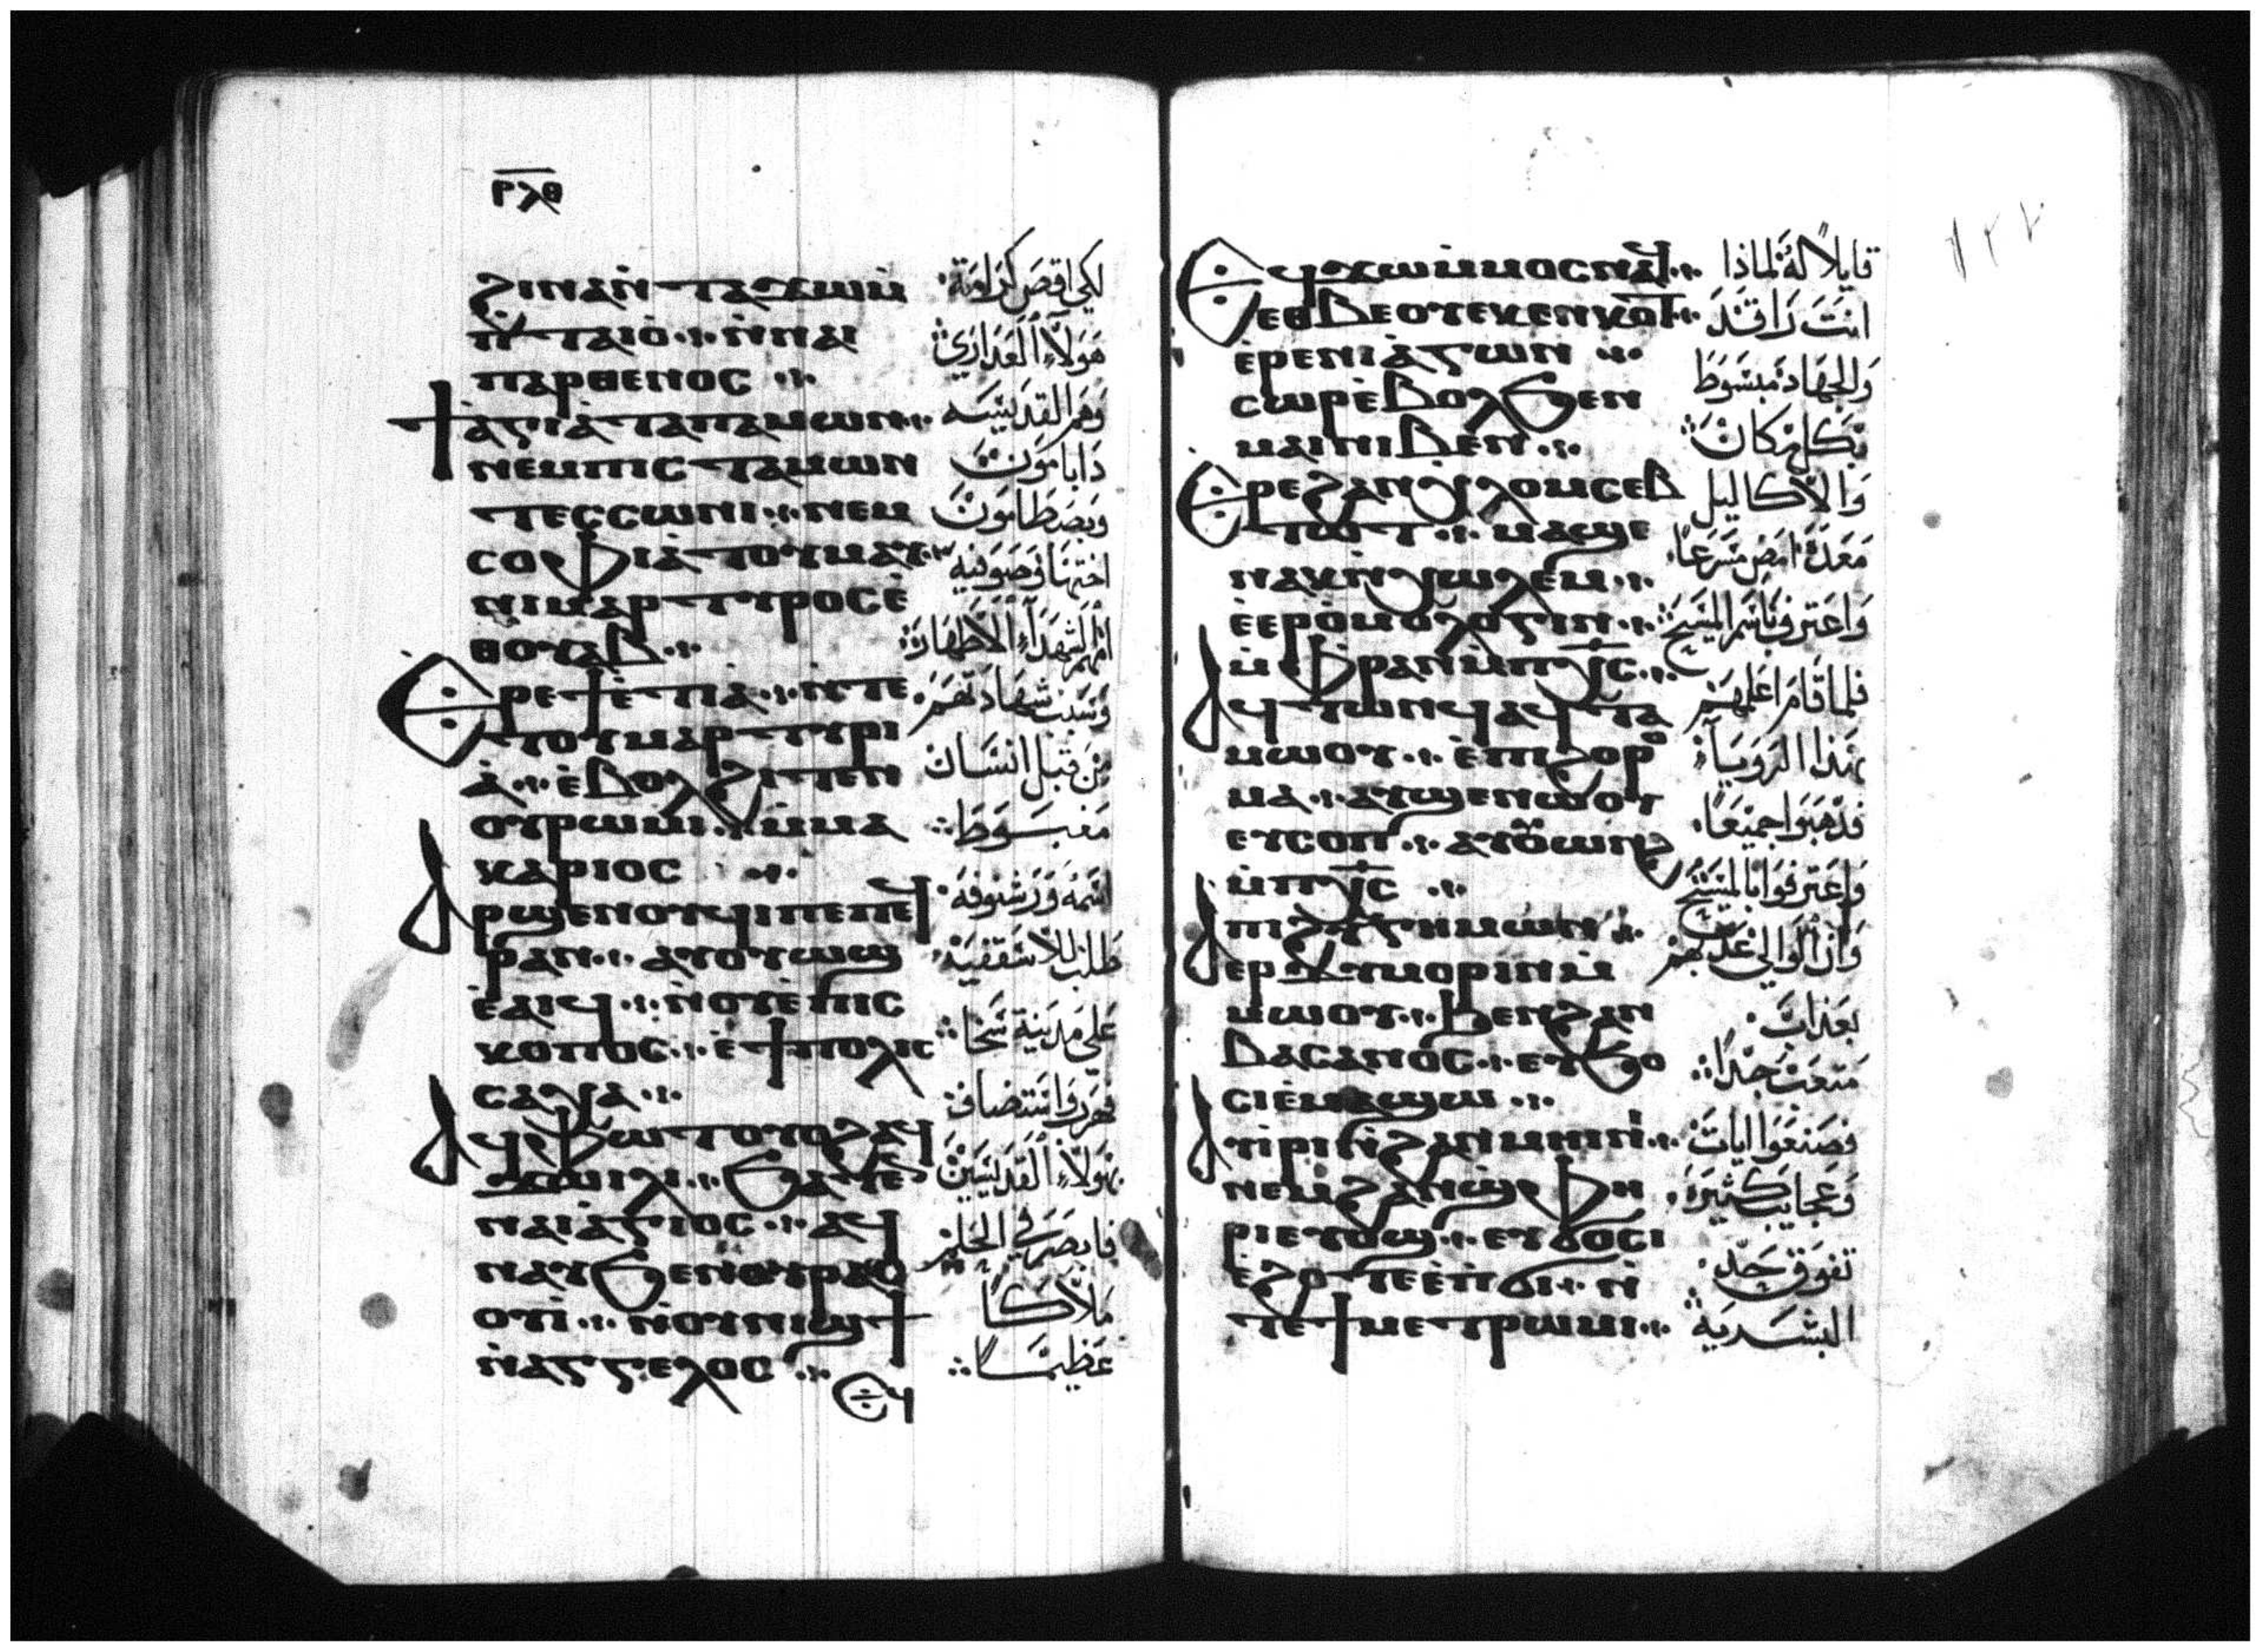 ⲣⲗⲑ
ϩⲓⲛⲁⲛ̀ⲧⲁϫⲱⲙ̀
ⲛ̀ⲧⲁⲓⲟ̀ ⲛ̀ⲛⲁⲓ
ⲡⲁⲣⲑⲉⲛⲟⲥ
ϯⲁ̀ⲅⲓⲁ̀ⲧⲁⲡⲁⲙⲱⲛ
ⲛⲉⲙⲡⲓⲥⲧⲁⲙⲱⲛ
ⲧⲉⲥⲥⲱⲛⲓ ⲛⲉⲙ
ⲥⲟⲫⲓⲁ̀ⲧⲟⲩⲙⲁⲩ
ⲛⲓⲙⲁⲣⲧⲩⲣⲟⲥⲉ̀
ⲑⲟⲩⲁⲃ
Ⲉⲣⲉϯⲉ̀ⲧⲓⲁ̀ ⲛ̀ⲧⲉ
ⲧⲟⲩⲙⲁⲣⲧⲩⲣⲓ
ⲁ̀ ⲉ̀ⲃⲟⲗϩⲓⲧⲉⲛ
ⲟⲩⲣⲱⲙⲓ ⲙ̀ⲙⲁ
ⲕⲁⲣⲓⲟⲥ
Ⲁⲣϣⲉⲛⲟⲩϥⲓⲡⲉⲡⲉϥ
ⲣⲁⲛ ⲁⲩⲟⲩⲱϣ
ⲉ̀ⲁⲓϥ ⲛ̀ⲟⲩⲉ̀ⲡⲓⲥ
ⲕⲟⲡⲟⲥ ⲉ̀ϯⲡⲟⲗⲓⲥ
ⲥⲁϧⲁ
Ⲁϥⲫⲱⲧⲟⲩⲟϩⲁϥ
ϫⲱⲓⲗⲓ ϧⲁⲧⲉ̀
ⲛⲁⲓⲁ̀ⲅⲓⲟⲥ ⲁϥ
ⲛⲁⲩϧⲉⲛⲟⲩⲣⲁⲥ
ⲟⲩⲓ̀ ⲛ̀ⲟⲩⲛⲓϣϯ
ⲛ̀ⲁⲅⲅⲉⲗⲟⲥ
Ⲉϥ
لكي اقص كرامة
هولاء العذاري
وهم القديسه
دابامون
وبصطامون
اختها وصوفيه
امهم الشهداء الاطهار
وسبب شهادتهم
من قبل انسان
مغبوط
اسمه ورشنوفه
طلب للاسقفية
على مدينة سخا
فهرب واستضاف
بهولاء القديسين
فابصر في الحلم
ملاكاً
عظيماً
١٢٧
Ⲉϥϫⲱⲙ̀ⲙⲟⲥⲛⲁϥ
ⲉⲑⲃⲉⲟⲩⲉⲕⲉⲛⲕⲟⲧ
ⲉ̀ⲣⲉⲛⲓⲁ̀ⲅⲱⲛ
ⲥⲱⲣⲉ̀ⲃⲟⲗϧⲉⲛ
ⲙⲁⲓⲛⲓⲃⲉⲛ
Ⲉⲣⲉϩⲁⲛⲭⲗⲟⲙⲥⲉⲃ
ⲧⲱⲧ ⲙⲁϣⲉ
ⲛⲁⲕⲛ̀ⲭⲱⲗⲉⲙ
ⲉ̀ⲉⲣⲟ̀ⲙⲟⲗⲟⲅⲓⲛ
ⲙ̀ⲫⲣⲁⲛⲙ̀ⲡⲭⲥ
Ⲁϥⲧⲱⲛϥⲁϥⲧⲁ
ⲙⲱⲟⲩ ⲉ̀ⲡⲓϩⲟⲣⲟ
ⲙⲁ ⲁⲩϣⲉⲛⲱⲟⲩ
ⲉⲩⲥⲟⲡ ⲁⲩⲟ̀ⲱⲛϩ
ⲙ̀ⲡⲭⲥ
Ⲁⲡⲓϩⲩⲅⲏⲙⲱⲛ
ⲉⲣⲇⲩⲙⲟⲣⲓⲛⲙ̀
ⲙⲱⲟⲩ ϧⲉⲛϩⲁⲛ
ⲃⲁⲥⲁⲛⲟⲥ ⲉⲩϧⲟ
ⲥⲓⲉ̀ⲙⲁϣⲱ
Ⲁⲩⲓ̀ⲣⲓⲛ̀ϩⲁⲛⲙⲏⲓⲛⲓ
ⲛⲉⲙϩⲁⲛϣ̀ⲫⲏ
ⲣⲓⲉⲩⲟϣ ⲉⲩϭⲟⲥⲓ
ⲉ̀ϩⲟⲧⲉⲉ̀ⲡϭⲓ ⲛ̀
ⲧⲉϯⲙⲉⲧⲣⲱⲙⲓ
قايلاً له لماذا
انت راقد
والجهاد مبسوط
بكل مكان
والاكاليل
معدة امض مسرعاً
واعترف باسم المسيح
فلما قام اعلمهم
بهذا الرويا
فذهبوا جميعاً
واعترفوا بالمسيح
وان الوالي عذبهم
بعذاب
متعب جداً
فصنعوا ايات
وعجايب كثيره
تفوق حد
البشرية